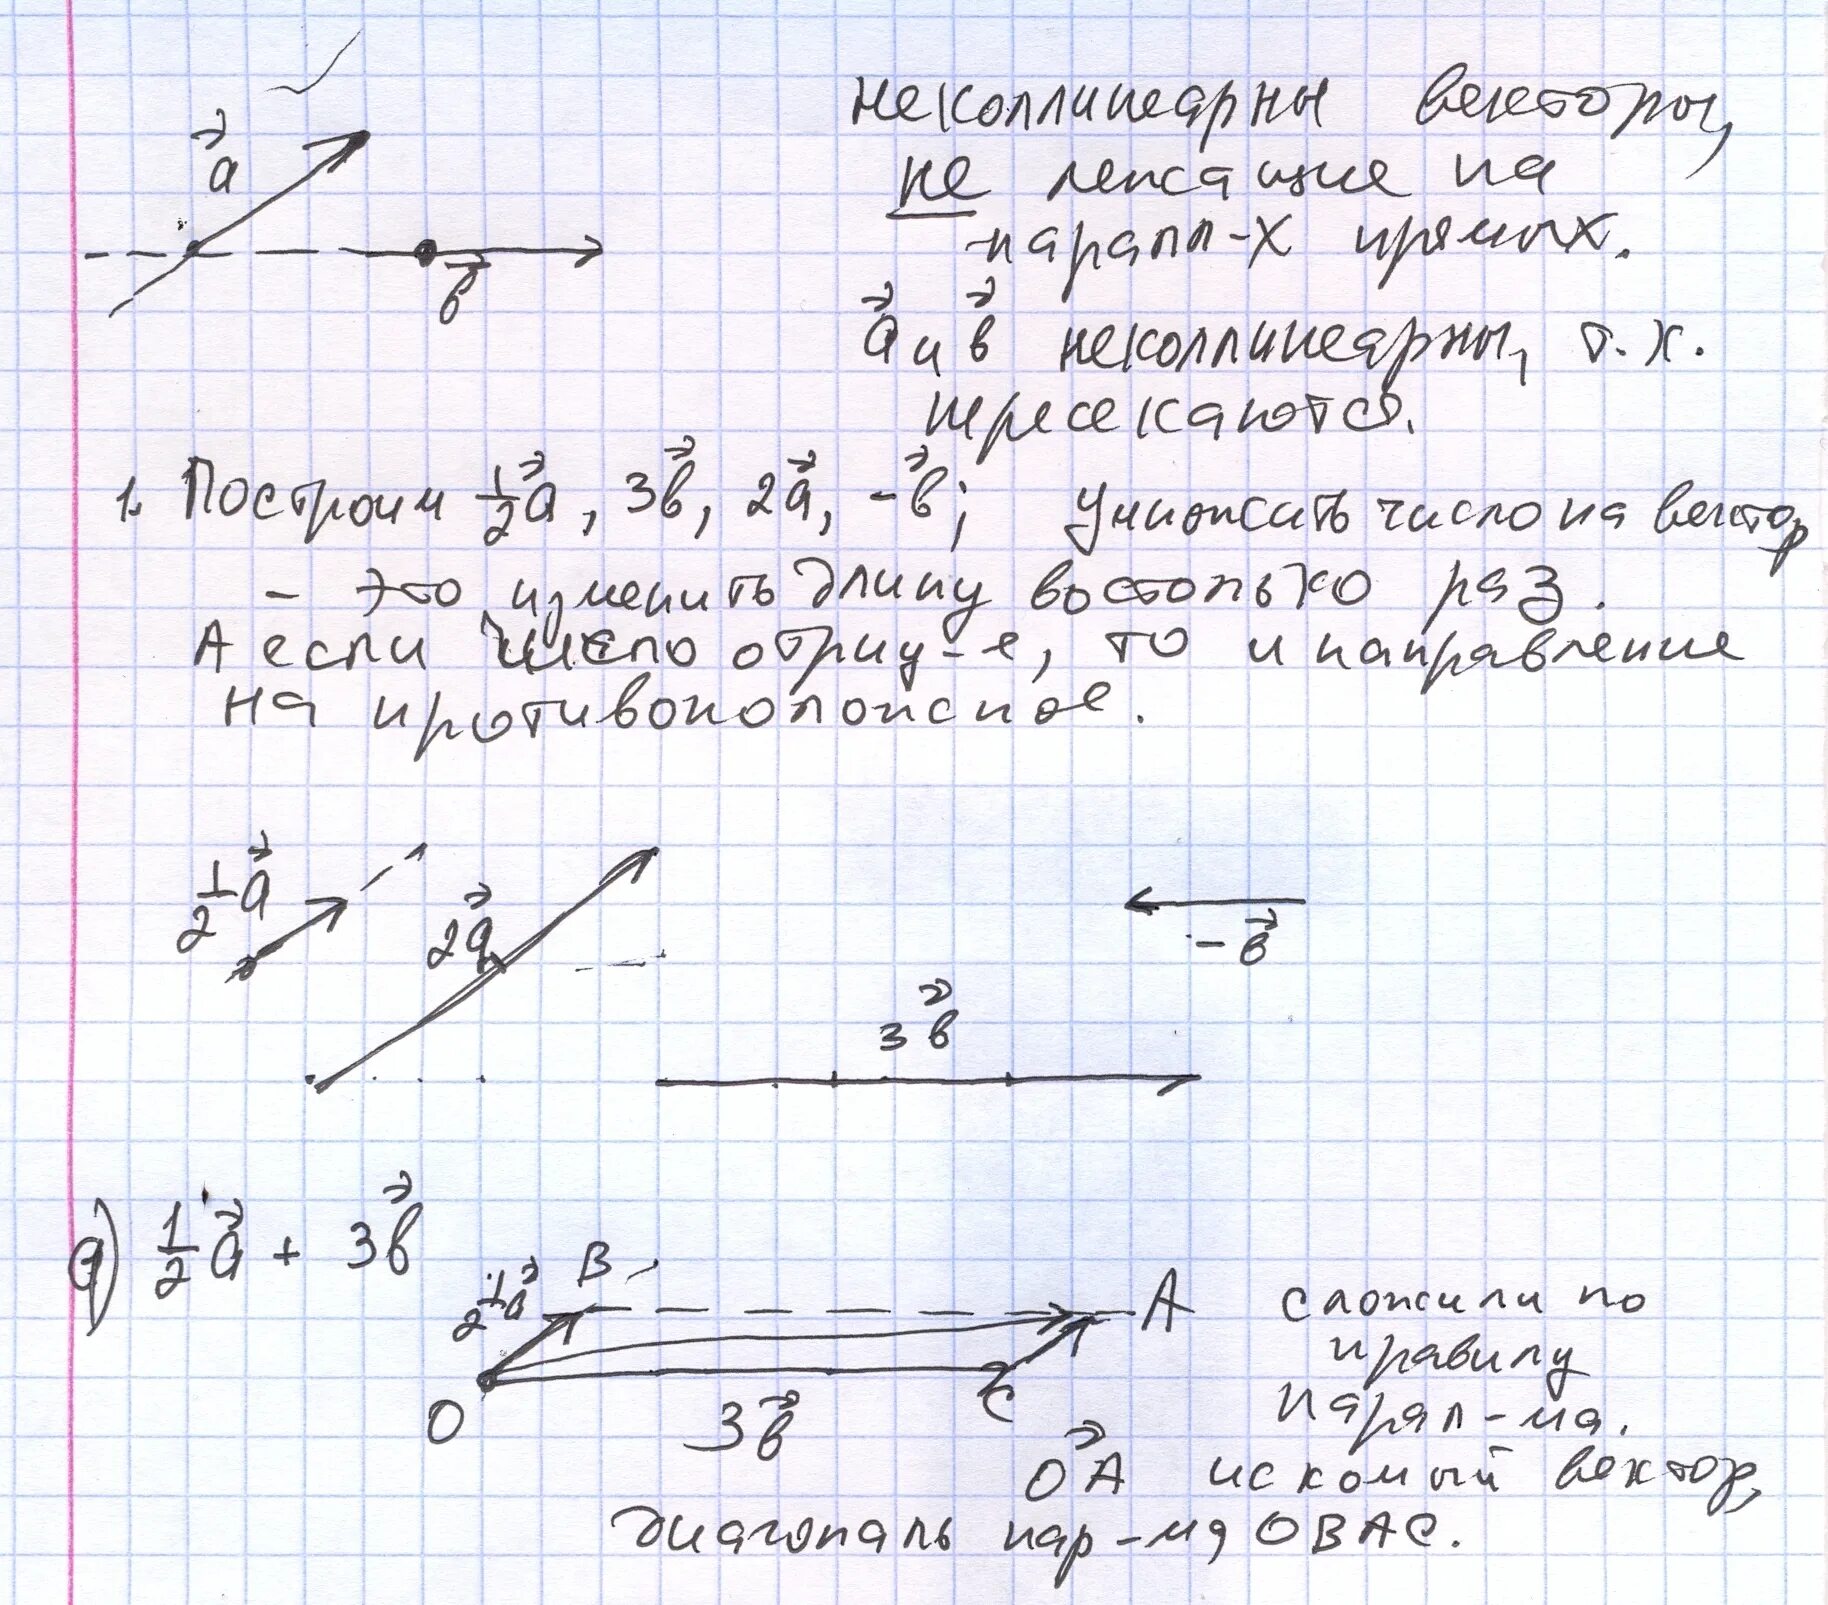 a⃗
b⃗
неколлинеарны векторы,
не лежащие на
паралл-х прямых.
a⃗ и b⃗ неколлинеарны, т.к.
пересекаются.
1. Построим 1/2 a⃗, 3b⃗, 2a⃗, -b⃗; Умножить число на вектор
- это изменить длину востолько раз.
А если число отриц-е, то и направление
на противоположное.
1/2 a⃗
2a⃗
-b⃗
3b⃗
a) 1/2 a⃗ + 3b⃗
1/2 a⃗ B A
O 3b⃗ C
сложили по
правилу
парал-ма.
OA⃗ искомый вектор,
диагональ пар-ма OBAC.